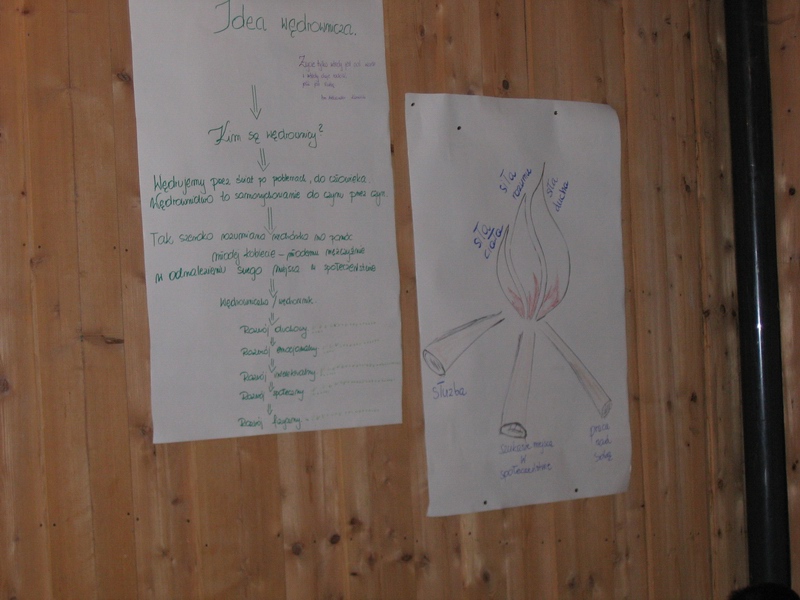 Idea wędrownicza.
Kim są wędrownicy?
Wędrujemy przez świat po problemach, do człowieka.
Wędrownictwo to samowychowanie do czynu przez czyn.
Tak szeroko rozumiana wędrówka ma pomóc
młodej kobiecie - młodemu mężczyźnie
w odnalezieniu swego miejsca w społeczeństwie
Wędrowniczka / wędrownik
Rozwój duchowy
Rozwój emocjonalny
Rozwój intelektualny
Rozwój społeczny
Rozwój fizyczny
siła
ciała
siła
rozumu
siła
ducha
służba
szukanie miejsca
w
społeczeństwie
praca
nad
sobą